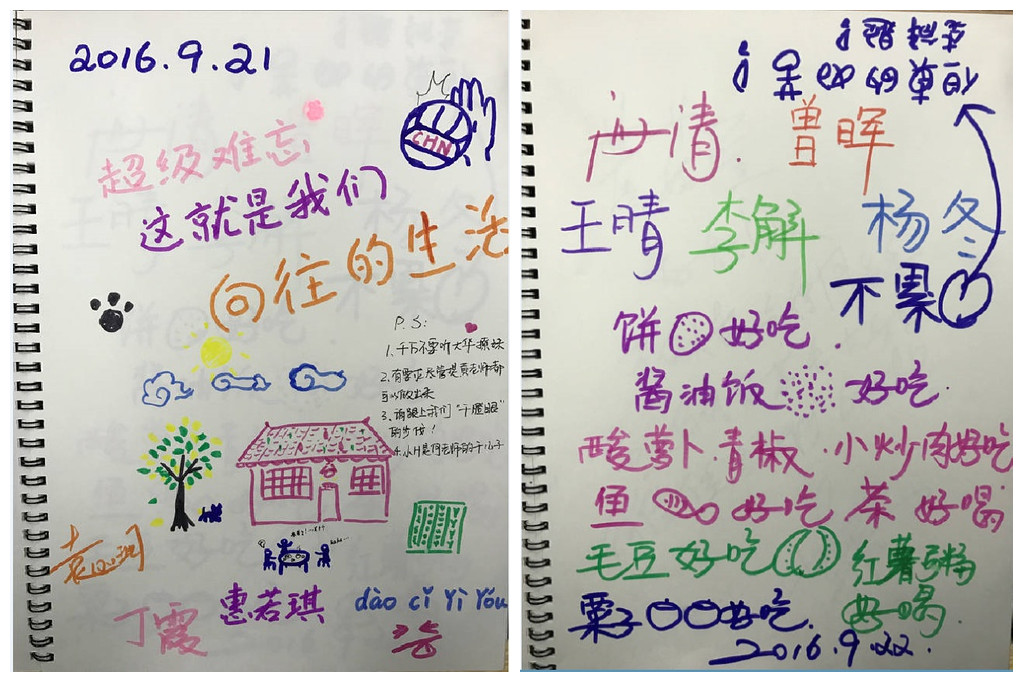 2016.9.21
CHN
超级难忘
这就是我们
向往的生活
P.S:
1、千万不要听大华撩妹
2、有需求尽管提黄老师都
可以做出来
3、请跟上我们
的步伐！
4、小H是何老师的干儿子
袁心玥
丁霞
惠若琪
dào cǐ yì yóu
清.
曾晖
王晴 李解 杨冬
不累
饼 好吃.
酱油饭 好吃.
酸萝卜·青椒·小炒肉好吃
鱼 好吃 茶 好喝
毛豆好吃 红薯粥
好喝.
栗子 好吃.
2016.9.22.